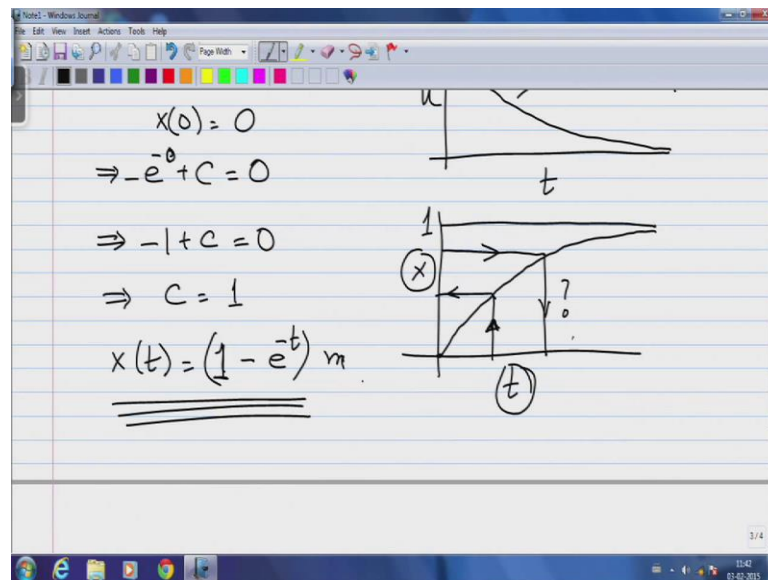 Note1 - Windows Journal
File Edit View Insert Actions Tools Help
Page Width
x(0) = 0
⇒ -e^{-0} + C = 0
⇒ -1 + C = 0
⇒ C = 1
x(t) = (1 - e^{-t}) m
u
t
1
x
?
t
3/4
11:42
03-02-2015